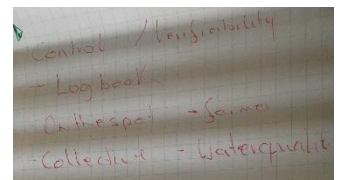 Control / Verifiability
- Logbook
On the spot - farmer
- Collective - Waterqualit